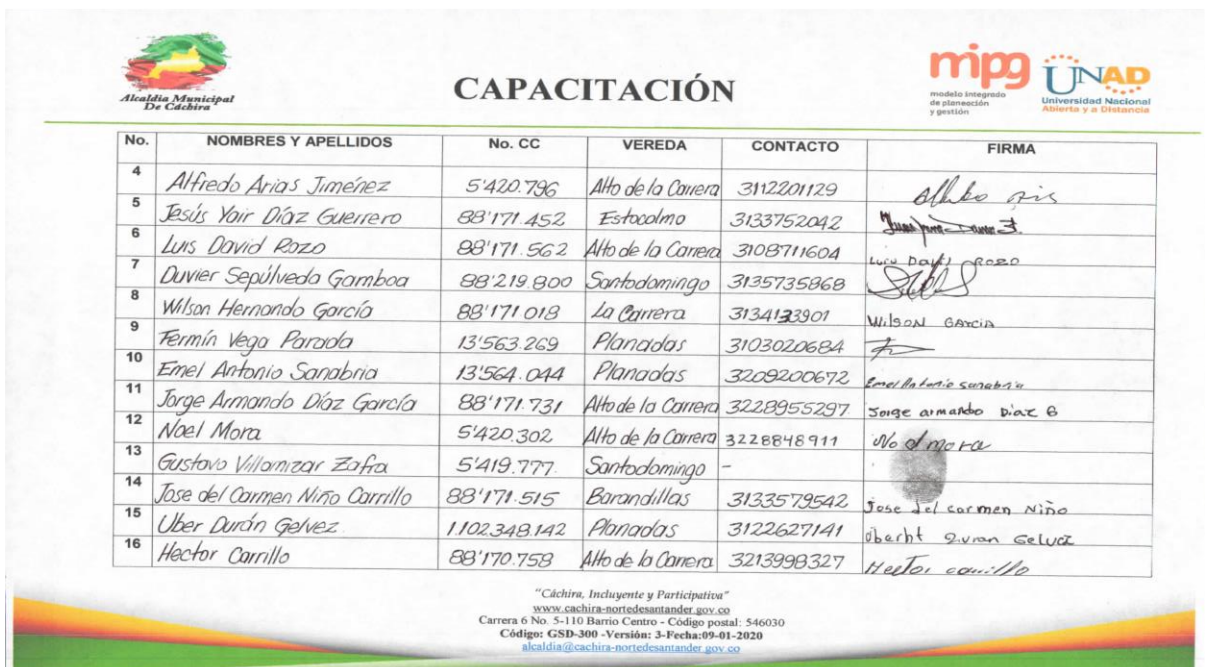 Alcaldia Municipal
De Cáchira
CAPACITACIÓN
mipg
modelo integrado
de planeación
y gestión
UNAD
Universidad Nacional
Abierta y a Distancia
No. NOMBRES Y APELLIDOS No. CC VEREDA CONTACTO FIRMA
4 Alfredo Arias Jiménez 5'420.796 Alto de la Carrera 3112201129
5 Jesús Yair Díaz Guerrero 88'171.452 Estocolmo 3133752042
6 Luis David Rozo 88'171.562 Alto de la Carrera 3108711604 Luis David Rozo
7 Duvier Sepúlveda Gamboa 88'219.800 Santodomingo 3135735868
8 Wilson Hernando García 88'171.018 La Carrera 3134133901 WilSON GARCIA
9 Fermín Vega Parada 13'563.269 Planadas 3103020684
10 Emel Antonio Sanabria 13'564.044 Planadas 3209200672 Emel Antonio sanabria
11 Jorge Armando Díaz García 88'171.731 Alto de la Carrera 3228955297 Jorge armando Diaz G
12 Noel Mora 5'420.302 Alto de la Carrera 3228848911 No el mora
13 Gustavo Villamizar Zafra 5'419.777. Santodomingo -
14 Jose del Carmen Niño Carrillo 88'171.515 Barandillas 3133579542 Jose del carmen Niño
15 Uber Durán Gelvez. 1.102.348.142 Planadas 3122627141
16 Hector Carrillo 88'170.758 Alto de la Carrera 3213998327 Hector carrillo
"Cáchira, Incluyente y Participativa"
www.cachira-nortedesantander.gov.co
Carrera 6 No. 5-110 Barrio Centro - Código postal: 546030
Código: GSD-300 -Versión: 3-Fecha:09-01-2020
alcaldia@cachira-nortedesantander.gov.co